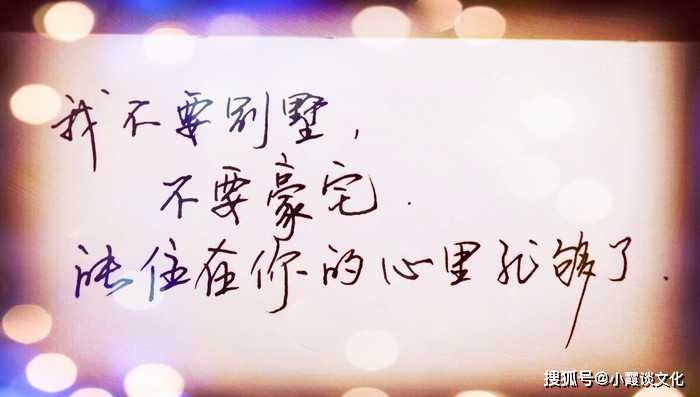 我不要别墅，
不要豪宅.
能住在你的心里就够了.
搜狐号@小霞谈文化